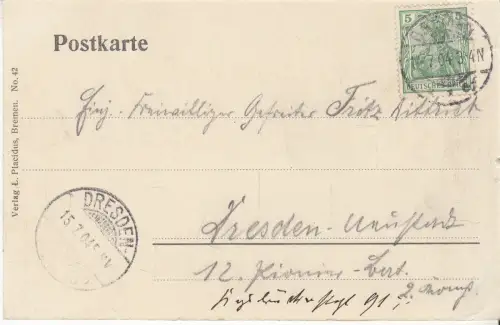 Postkarte
5 5
DEUTSCHES REICH
Einj. Freiwilliger Gefreiter Fritz Dittrich
Dresden-Neustadt
12. Pionier-Bat.
2. Komp.
91
DRESDEN
15.7.04
Verlag L. Placidus, Bremen. No. 42